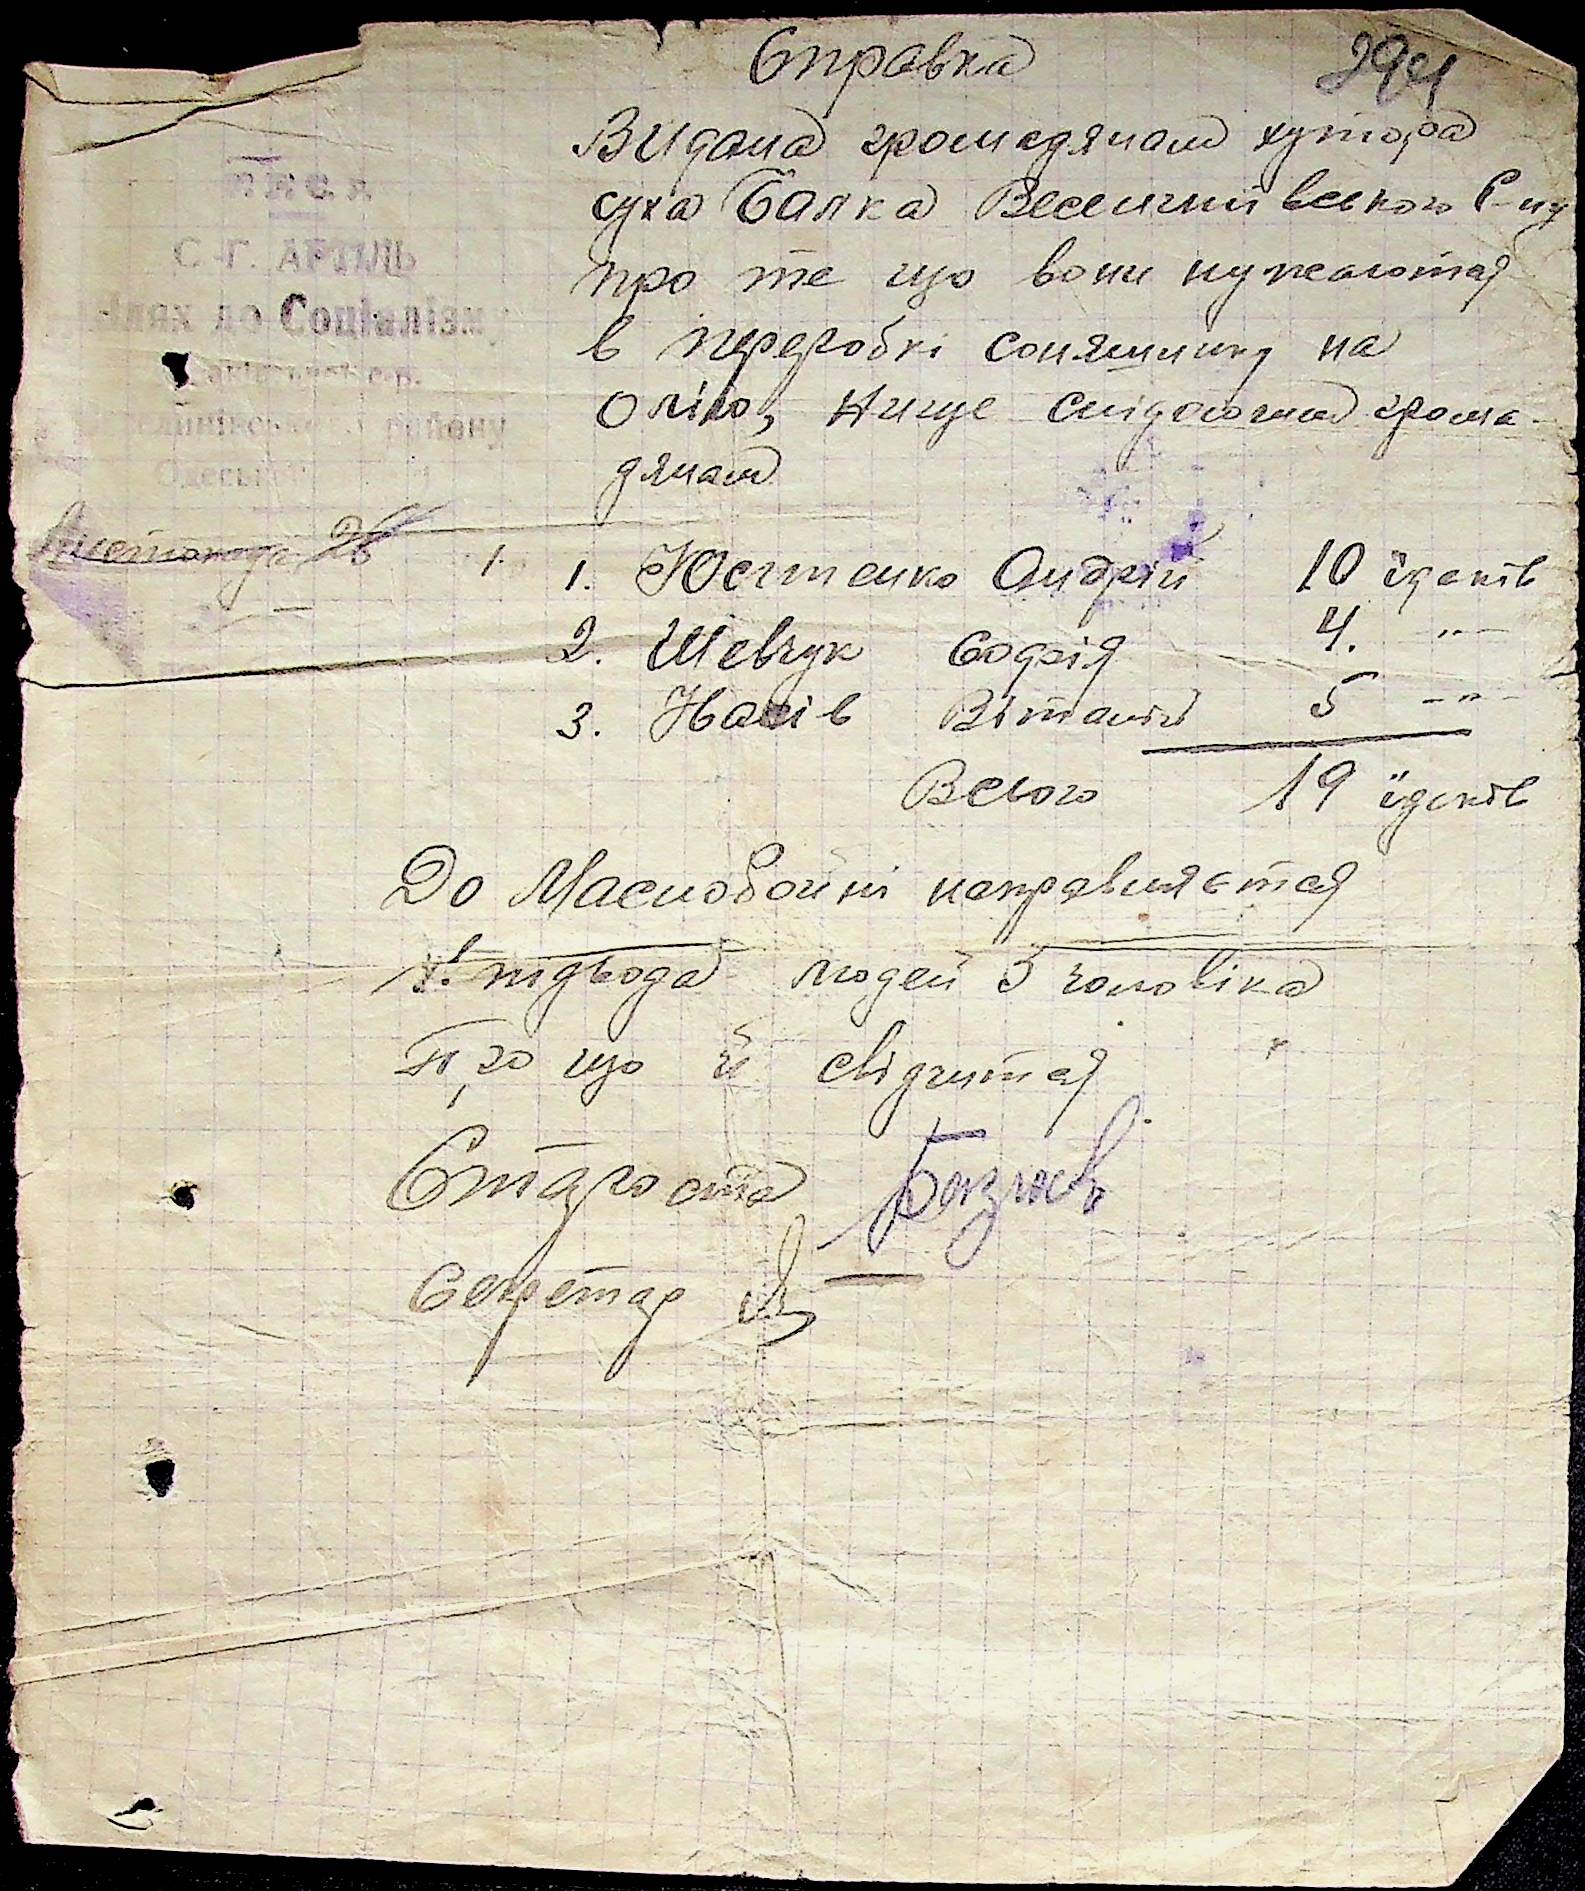 Справка
294
Видана громадянам хутора
суха Балка Веселинівського Р-ну
про те що вони нужаются
в переробкі соняшнику на
олію, нище слідуючим грома-
дянам
У С С Р
С.-Г. АРТІЛЬ
Шлях до Соціалізму
району
Одеської
Листопада 26
1. Юстненко Андрій 10 їдоків
2. Шевчук Софія 4. -"-
3. Насів Віталій 5 -"-
Всього 19 їдоків
До Маслобойні направляєтся
1. підвода людей 3 чоловіка
Про що й свідчится
Староста
Секретар